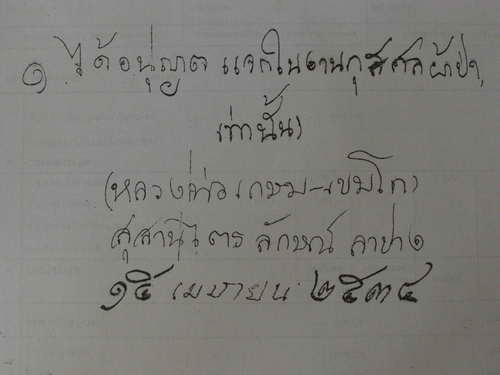 ๑ ได้อนุญาต แจกในงานกุศลผ้าป่า
เท่านั้น
(หลวงพ่อเกษม-เขมโก)
สุสานไตรลักษณ์ ลำปาง
๑๕ เมษายน ๒๕๓๔